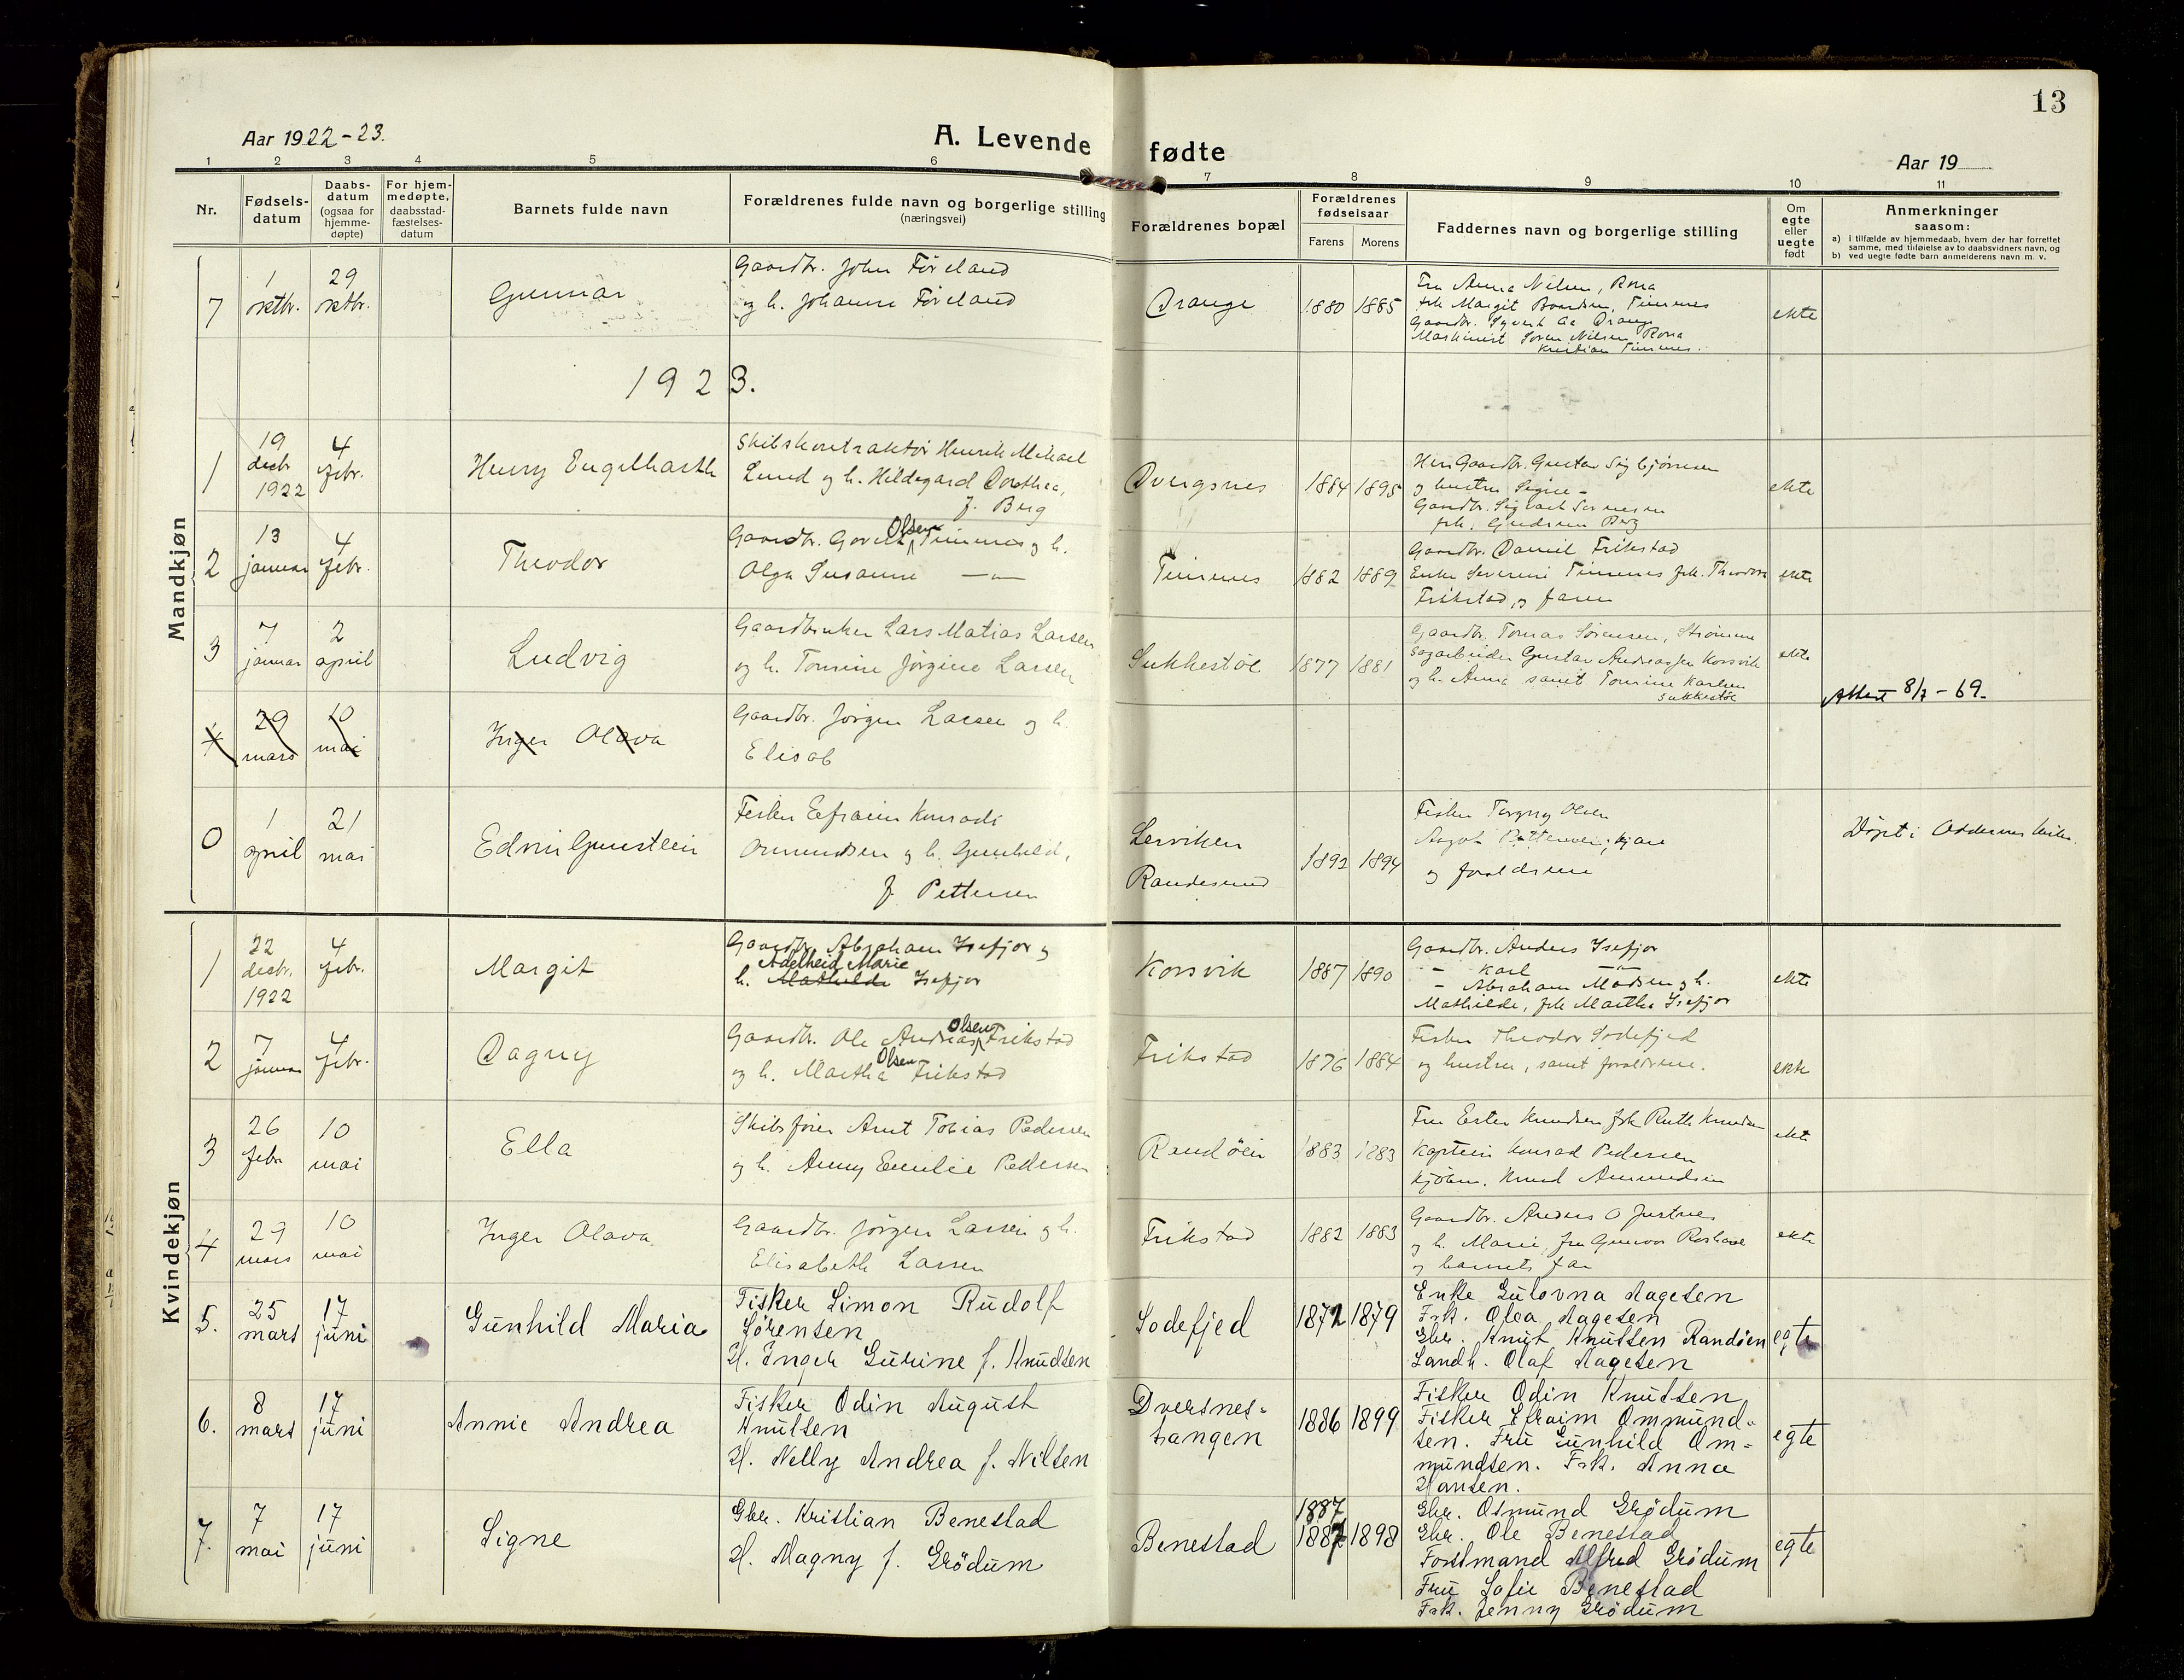 13
Aar 1922-23.
A. Levende fødte
Aar 19
1 2 3 4 5 6 7 8 9 10 11
Nr.
Fødsels-
datum
Daabs-
datum
(ogsaa for
hjemme-
døpte)
For hjem-
medøpte,
daabsstad-
fæstelses-
datum
Barnets fulde navn
Forældrenes fulde navn og borgerlige stilling
(næringsvei)
Forældrenes bopæl
Forældrenes
fødselsaar
Farens
Morens
Faddernes navn og borgerlige stilling
Om
egte
eller
uegte
født
Anmerkninger
saasom:
a) i tilfælde av hjemmedaab, hvem der har forrettet
samme, med tilføielse av to daabsvidners navn, og
b) ved uegte fødte barn anmelderens navn m. v.
Mandkjøn
7
1
oktbr.
29
oktbr.
Gunnar
Gaardbr. John Föreland
og h. Johanne Föreland
Drange
1880 1885
Fru Anna Nilsen, Rona
frk Margit Timenes
Gaardbr. Drange
Maskinist Søren Nilsen Rona
Kristian Timenes.
ekte
1923.
1
19
decbr
1922
4
febr.
Henry Engelharth
Skibskontraktør Henrik Mikael
Lund og h. Hildegard Dorothea,
f. Berg
Dvergsnes
1884 1895
Gaardbr. Gustav Sigbjörnsen
og hustru Signe -
Gaardbr. Sigvart
frk. Gudrun Berg
ekte
2
13
januar
4
febr.
Theodor
Olsen
Gaardbr. Timenes og h.
Olga Susanne —"—
Timenes
1882 1889
Gaardbr. Daniel Frikstad
Enke Severine Timenes frk. Theodora
Frikstad, og faren
ekte
3
7
januar
2
april
Ludvig
Gaardbruker Lars Matias Larsen
og h. Tomine Jørgine Larsen
Sukkestöl
1877 1881
Gaardbr. Tomas Sørensen, Strömme
Sagarbeider Gustav Andreassen Korsvik
og h. Anna samt Tomine Karlsen
Sukkestöl
ekte
Attest 8/7-69.
4
29
mars
10
mai
Inger Olava
Gaardbr. Jørgen Larsen og h.
Elisab
0
1
april
21
mai
Edvin Gunstein
Fisker Eefraim Konrads
Ommundsen og h. Gunhild,
f. Pettersen
Randesund
1892 1894
Fisker Olsen
og foreldrene
Döpt i Oddernes kirke.
Kvindekjøn
1
22
decbr.
1922
4
febr.
Margit
Gaardbr. Abraham Isefjær og
Adelheid Marie
h. Mathilde Isefjær
Korsvik
1887 1890
Gaardbr. Anders Isefjær
- Karl —"—
- Abraham Madsen og h.
Mathilde, frk Martha Isefjær
ekte
2
7
januar
4
febr.
Dagny
Olsen
Gaardbr. Ole Andreas Frikstad
Olsen
og h. Martha Frikstad
Frikstad
1876 1884
Fisker Theodor Sodefjed
og hustru, samt foreldrene.
ekte
3
26
febr
10
mai
Ella
Skibsfører Arnt Tobias Pedersen
og h. Anny Emilie Pedersen
Randöen
1883 1883
Fru Ester Knudsen frk Ruth Knudsen
Kaptein Konrad Pedersen
Kjöbm. Knud Ammundsen
ekte
4
29
mars
10
mai
Inger Olava
Gaardbr. Jörgen Larsen og h.
Elisabeth Larsen
Frikstad
1882 1883
Gaardbr. Anders O Justnes
og h. Marie, fru Gunvor
og barnets far
ekte
5.
25
mars
17
juni
Gunhild Maria
Fisker Simon Rudolf
Sørensen
H. Inger Gurine f. Knudsen
Sodefjed
1872 1879
Enke Gulovna Aagesen
Frk. Olea Aagesen
Gbr. Knut Knutsen Randöen
Landh. Olaf Aagesen
egte
6.
8
mars
17
juni
Annie Andrea
Fisker Odin August
Knutsen
H. Nelly Andrea f. Nilsen
Dversnes-
tangen
1886 1899
Fisker Odin Knutsen
Fisker Efraim Ommund-
sen. Fru Gunhild Om-
mundsen. Frk. Anna
Hansen.
egte
7.
7
mai
17
juni
Signe
Gbr. Kristian Benestad
H. Magny f. Grödum
Benestad
1887
1887 1898
Gbr. Osmund Grödum
Gbr. Ole Benestad
Forstmand Alfred Grödum
Fru Sofie Benestad
Frk. Jenny Grödum
egte